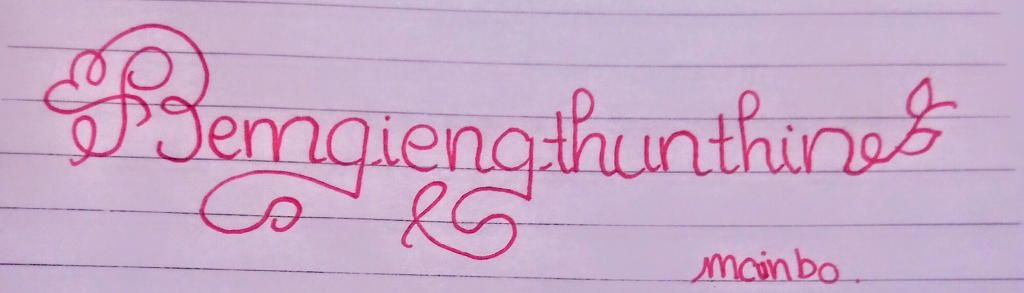 Bemgiengthunthine
mainbo.